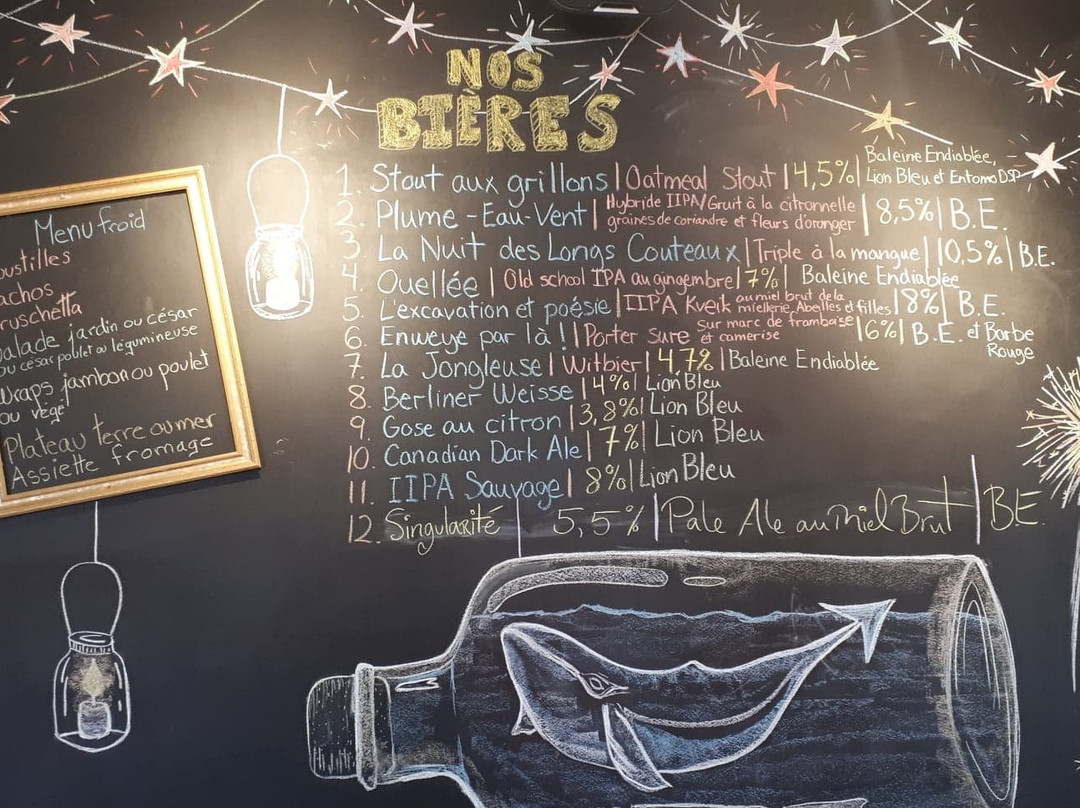 NOS
BIÈRES
1. Stout aux grillons | Oatmeal Stout | 4,5% | Baleine Endiablée,
Lion Bleu et EntomoDSP
2. Plume-Eau-Vent | Hybride IIPA/Gruit à la citronnelle
graines de coriandre et fleurs d'oranger | 8,5% | B.E.
3. La Nuit des Longs Couteaux | Triple à la mangue | 10,5% | B.E.
4. Ouellée | Old school IPA au gingembre | 7% | Baleine Endiablée
5. L'excavation et poésie | IIPA Kveik au miel brut de la
miellerie Abeilles et filles | 8% | B.E.
6. Enweye par là !! | Porter sure sur marc de framboise
et camerise | 6% | B.E. et Barbe
Rouge
7. La Jongleuse | Witbier | 4,7% | Baleine Endiablée
8. Berliner Weisse | 4% | Lion Bleu
9. Gose au citron | 3,8% | Lion Bleu
10. Canadian Dark Ale | 7% | Lion Bleu
11. IIPA Sauvage | 8% | Lion Bleu
12. Singularité | 5,5% | Pale Ale au miel Brut | B.E.
Menu froid
oustilles
achos
ruschetta
alade jardin ou césar
ou césar poulet ou légumineuse
Wraps jambon ou poulet
ou végé
Plateau terre ou mer
Assiette fromage